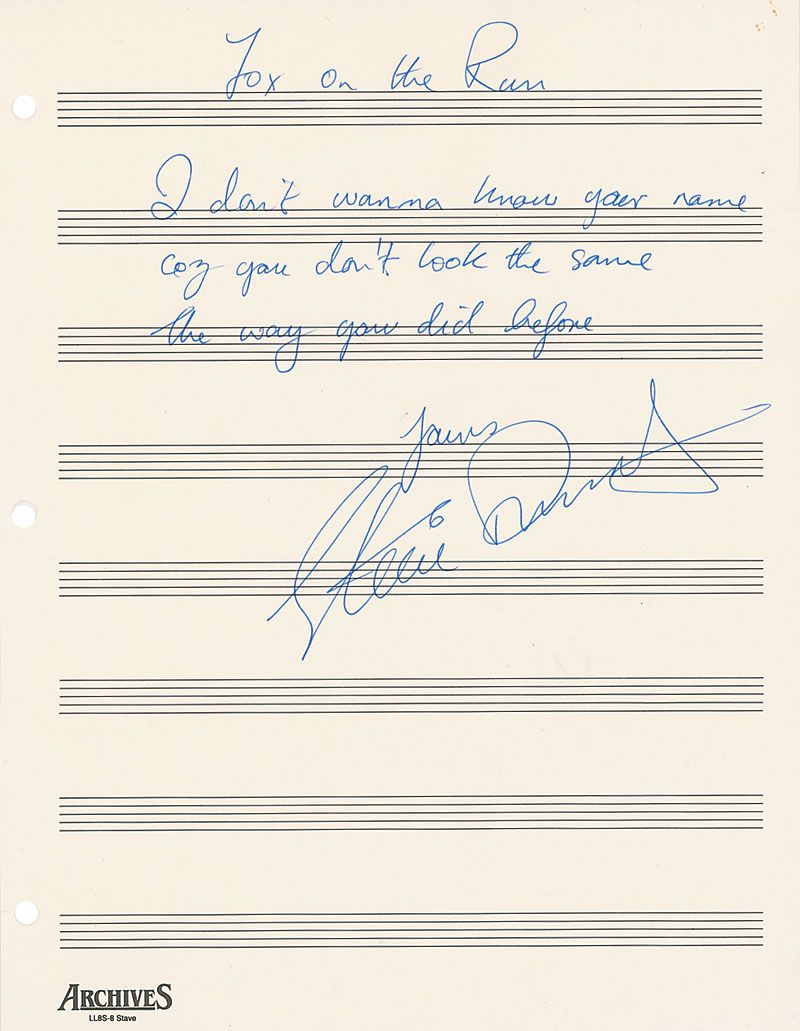 Fox on the Run
I don't wanna know your name
coz you don't look the same
the way you did before
Yours
ARCHIVES
LL8S-8 Stave